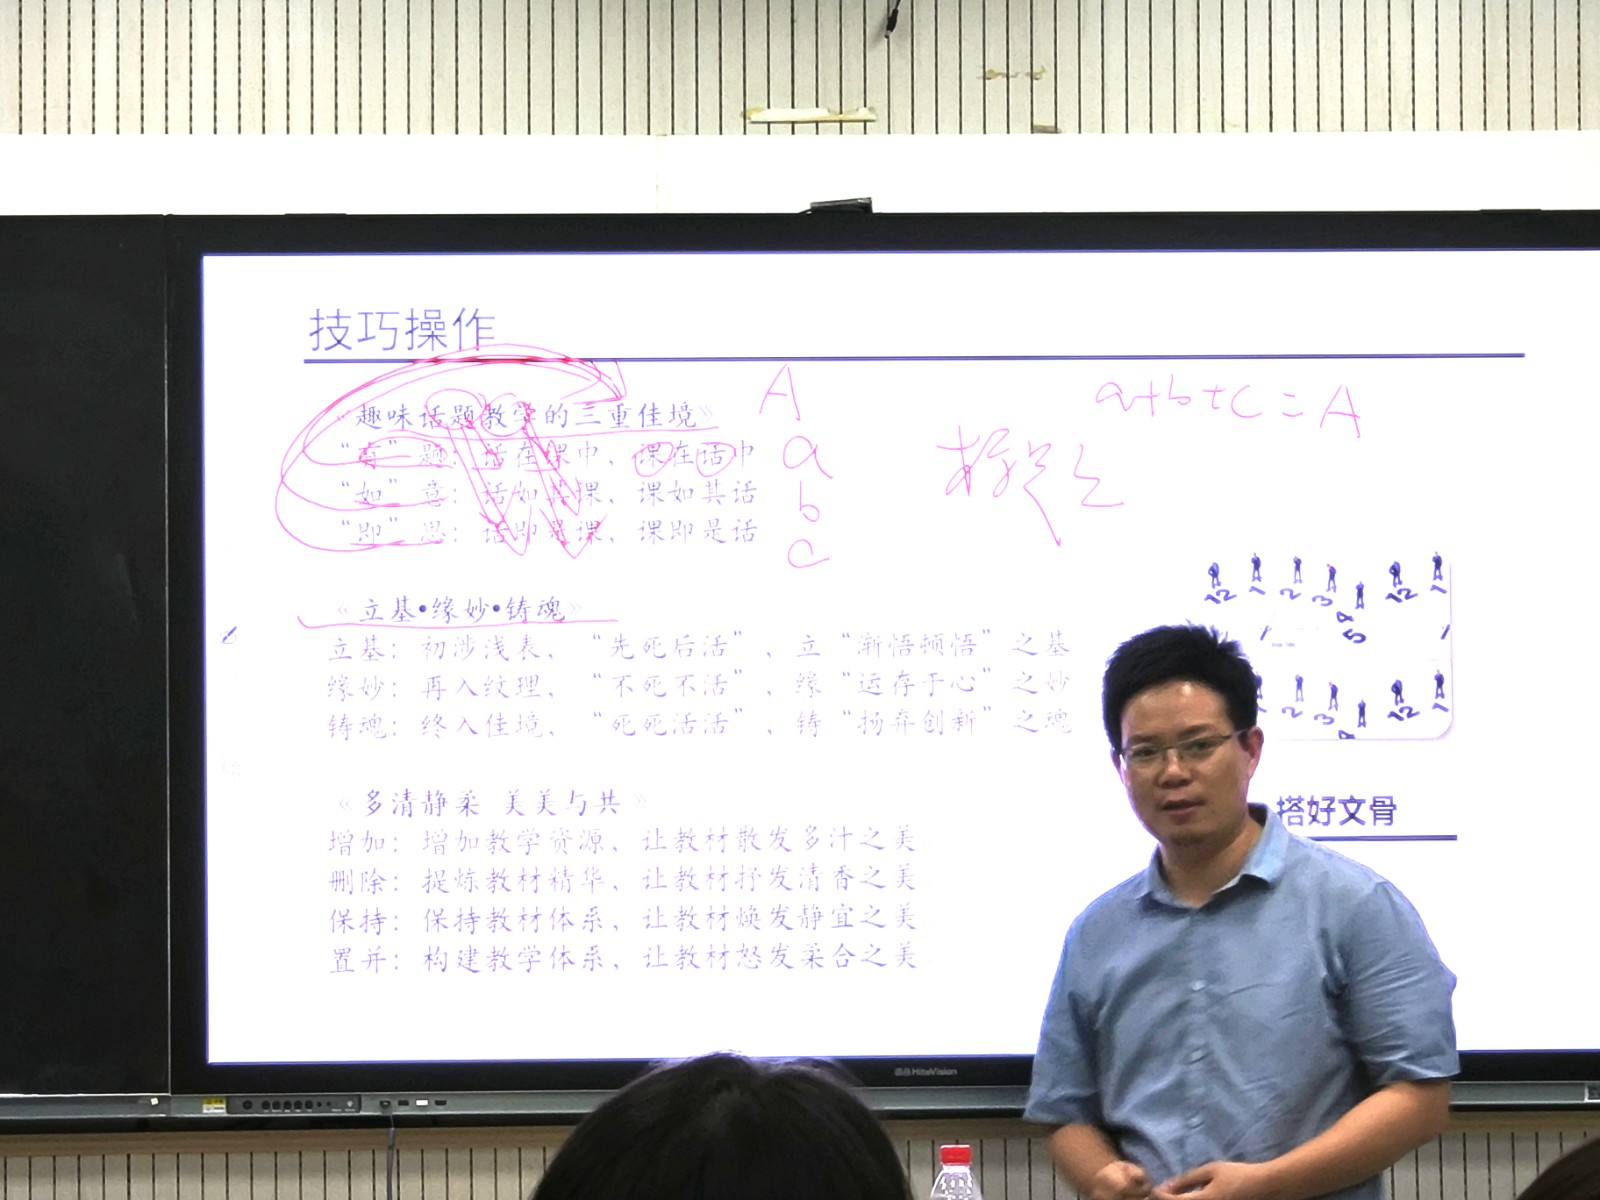 技巧操作
《趣味话题教学的三重佳境》
“有”题：话在课中，课在话中
“如”意：话如其课，课如其话
“即”思：话即是课，课即是话
A
a
b
c
a+b+c=A
《立基•缘妙•铸魂》
立基：初涉浅表，“先死后活”，立“渐悟顿悟”之基
缘妙：再入纹理，“不死不活”，缘“运存于心”之妙
铸魂：终入佳境，“死死活活”，铸“扬弃创新”之魂
《多清静柔 美美与共》
增加：增加教学资源，让教材散发多汁之美
删除：提炼教材精华，让教材抒发清香之美
保持：保持教材体系，让教材焕发静宜之美
置并：构建教学体系，让教材怒发柔合之美
搭好文骨
HiteVision